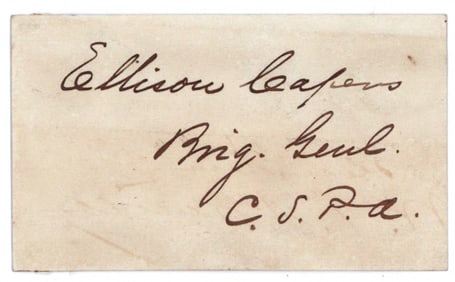 Ellison Capers
Brig. Genl.
C. S. P. A.